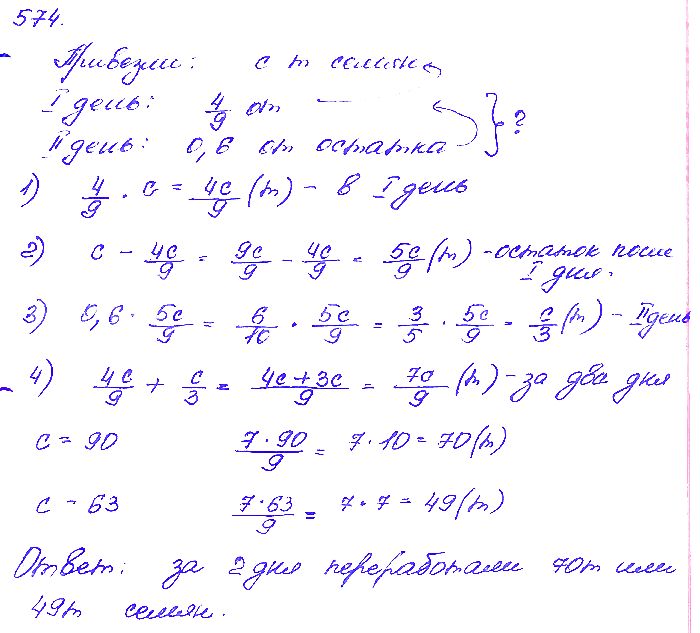 574.
Привезли: c т семян
I день: 4/9 от —
II день: 0,6 от остатка } ?
1) 4/9 · c = 4c/9 (т) - в I день
2) c - 4c/9 = 9c/9 - 4c/9 = 5c/9 (т) - остаток после
I дня.
3) 0,6 · 5c/9 = 6/10 · 5c/9 = 3/5 · 5c/9 = c/3 (т) - II день
4) 4c/9 + c/3 = 4c+3c/9 = 7c/9 (т) - за два дня
c = 90 7·90/9 = 7·10 = 70(т)
c = 63 7·63/9 = 7·7 = 49(т)
Ответ: за 2 дня переработали 70т или
49т семян.